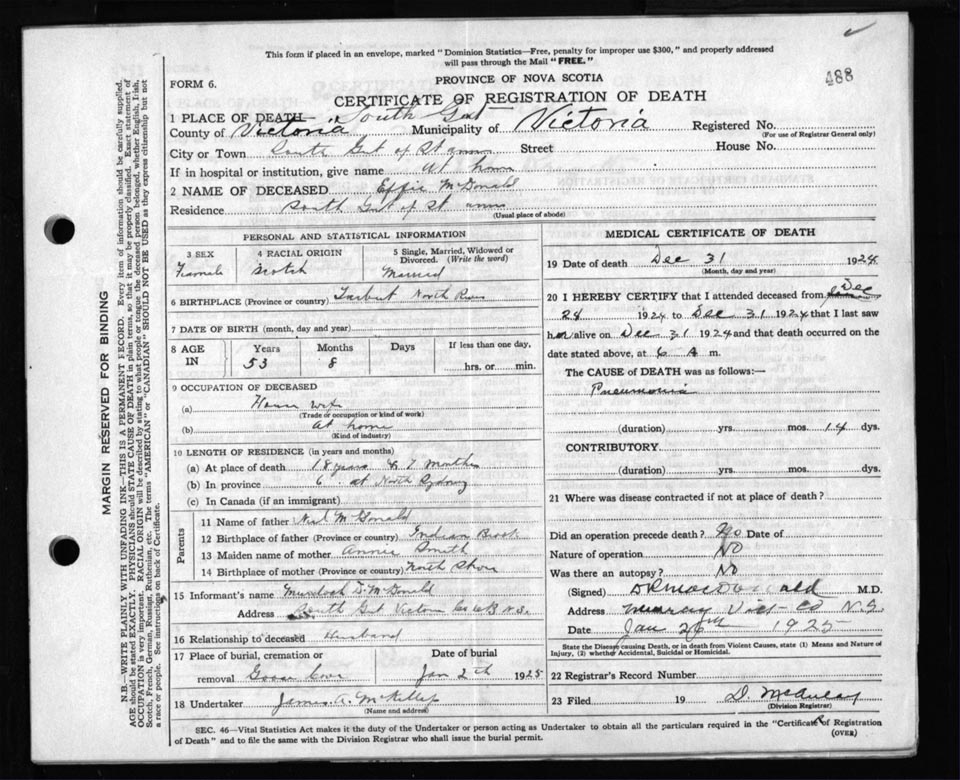 This form if placed in an envelope, marked "Dominion Statistics—Free, penalty for improper use $300," and properly addressed
will pass through the Mail "FREE."
488
FORM 6.
PROVINCE OF NOVA SCOTIA
CERTIFICATE OF REGISTRATION OF DEATH
1 PLACE OF DEATH South Gut
County of Victoria Municipality of Victoria Registered No.
(For use of Registrar General only)
City or Town South Gut of St Street House No.
If in hospital or institution, give name at home
2 NAME OF DECEASED Effie McDonald
Residence South Gut of St anns
(Usual place of abode)
PERSONAL AND STATISTICAL INFORMATION
3 SEX 4 RACIAL ORIGIN 5 Single, Married, Widowed or Divorced. (Write the word)
Female Scotch Married
6 BIRTHPLACE (Province or country) Tarbut North River
7 DATE OF BIRTH (month, day and year)
8 AGE IN Years Months Days If less than one day,
53 8 hrs. or min.
9 OCCUPATION OF DECEASED
(a) House wife
(Trade or occupation or kind of work)
(b) At home
(Kind of industry)
10 LENGTH OF RESIDENCE (in years and months)
(a) At place of death 18 years & 7 months
(b) In province 6 at North Sydney
(c) In Canada (if an immigrant)
Parents
11 Name of father Neil McDonald
12 Birthplace of father (Province or country) Indian Brook
13 Maiden name of mother Annie Smith
14 Birthplace of mother (Province or country) North Shore
15 Informant's name Murdoch D. McDonald
Address South Gut Victoria Co C.B. N.S.
16 Relationship to deceased Husband
17 Place of burial, cremation or removal Date of burial
Goose Cove Jan 2nd 1925
18 Undertaker James A. McKillop
(Name and address)
MEDICAL CERTIFICATE OF DEATH
19 Date of death Dec 31 1924
(Month, day and year)
20 I HEREBY CERTIFY that I attended deceased from Dec
28 1924 to Dec 31 1924 that I last saw
her alive on Dec 31 1924 and that death occurred on the
date stated above, at 6 A m.
The CAUSE of DEATH was as follows:—
Pneumonia
(duration) yrs. mos. 14 dys.
CONTRIBUTORY
(duration) yrs. mos. dys.
21 Where was disease contracted if not at place of death?
Did an operation precede death? No Date of
Nature of operation NO
Was there an autopsy? No
(Signed) M.D.
Address N.S.
Date Jan 26th 1925
State the Disease causing Death, or in death from Violent Causes, state (1) Means and Nature of Injury, (2) whether Accidental, Suicidal or Homicidal.
22 Registrar's Record Number
23 Filed 19 D. McAulay
(Division Registrar)
SEC. 46—Vital Statistics Act makes it the duty of the Undertaker or person acting as Undertaker to obtain all the particulars required in the "Certificate of Registration
of Death" and to file the same with the Division Registrar who shall issue the burial permit.
(OVER)
MARGIN RESERVED FOR BINDING
N.B.—WRITE PLAINLY WITH UNFADING INK—THIS IS A PERMANENT RECORD. Every item of information should be carefully supplied.
AGE should be stated EXACTLY. PHYSICIANS should STATE CAUSE OF DEATH in plain terms, so that it may be properly classified. Exact statement of
OCCUPATION is very important. RACIAL ORIGIN will be described by stating to what people or tongue the deceased person belonged, whether English, Irish,
Scotch, French, German, Russian, Ruthenian, etc. The terms "AMERICAN" or "CANADIAN" SHOULD NOT BE USED as they express citizenship but not
a race or people. See instructions on back of Certificate.